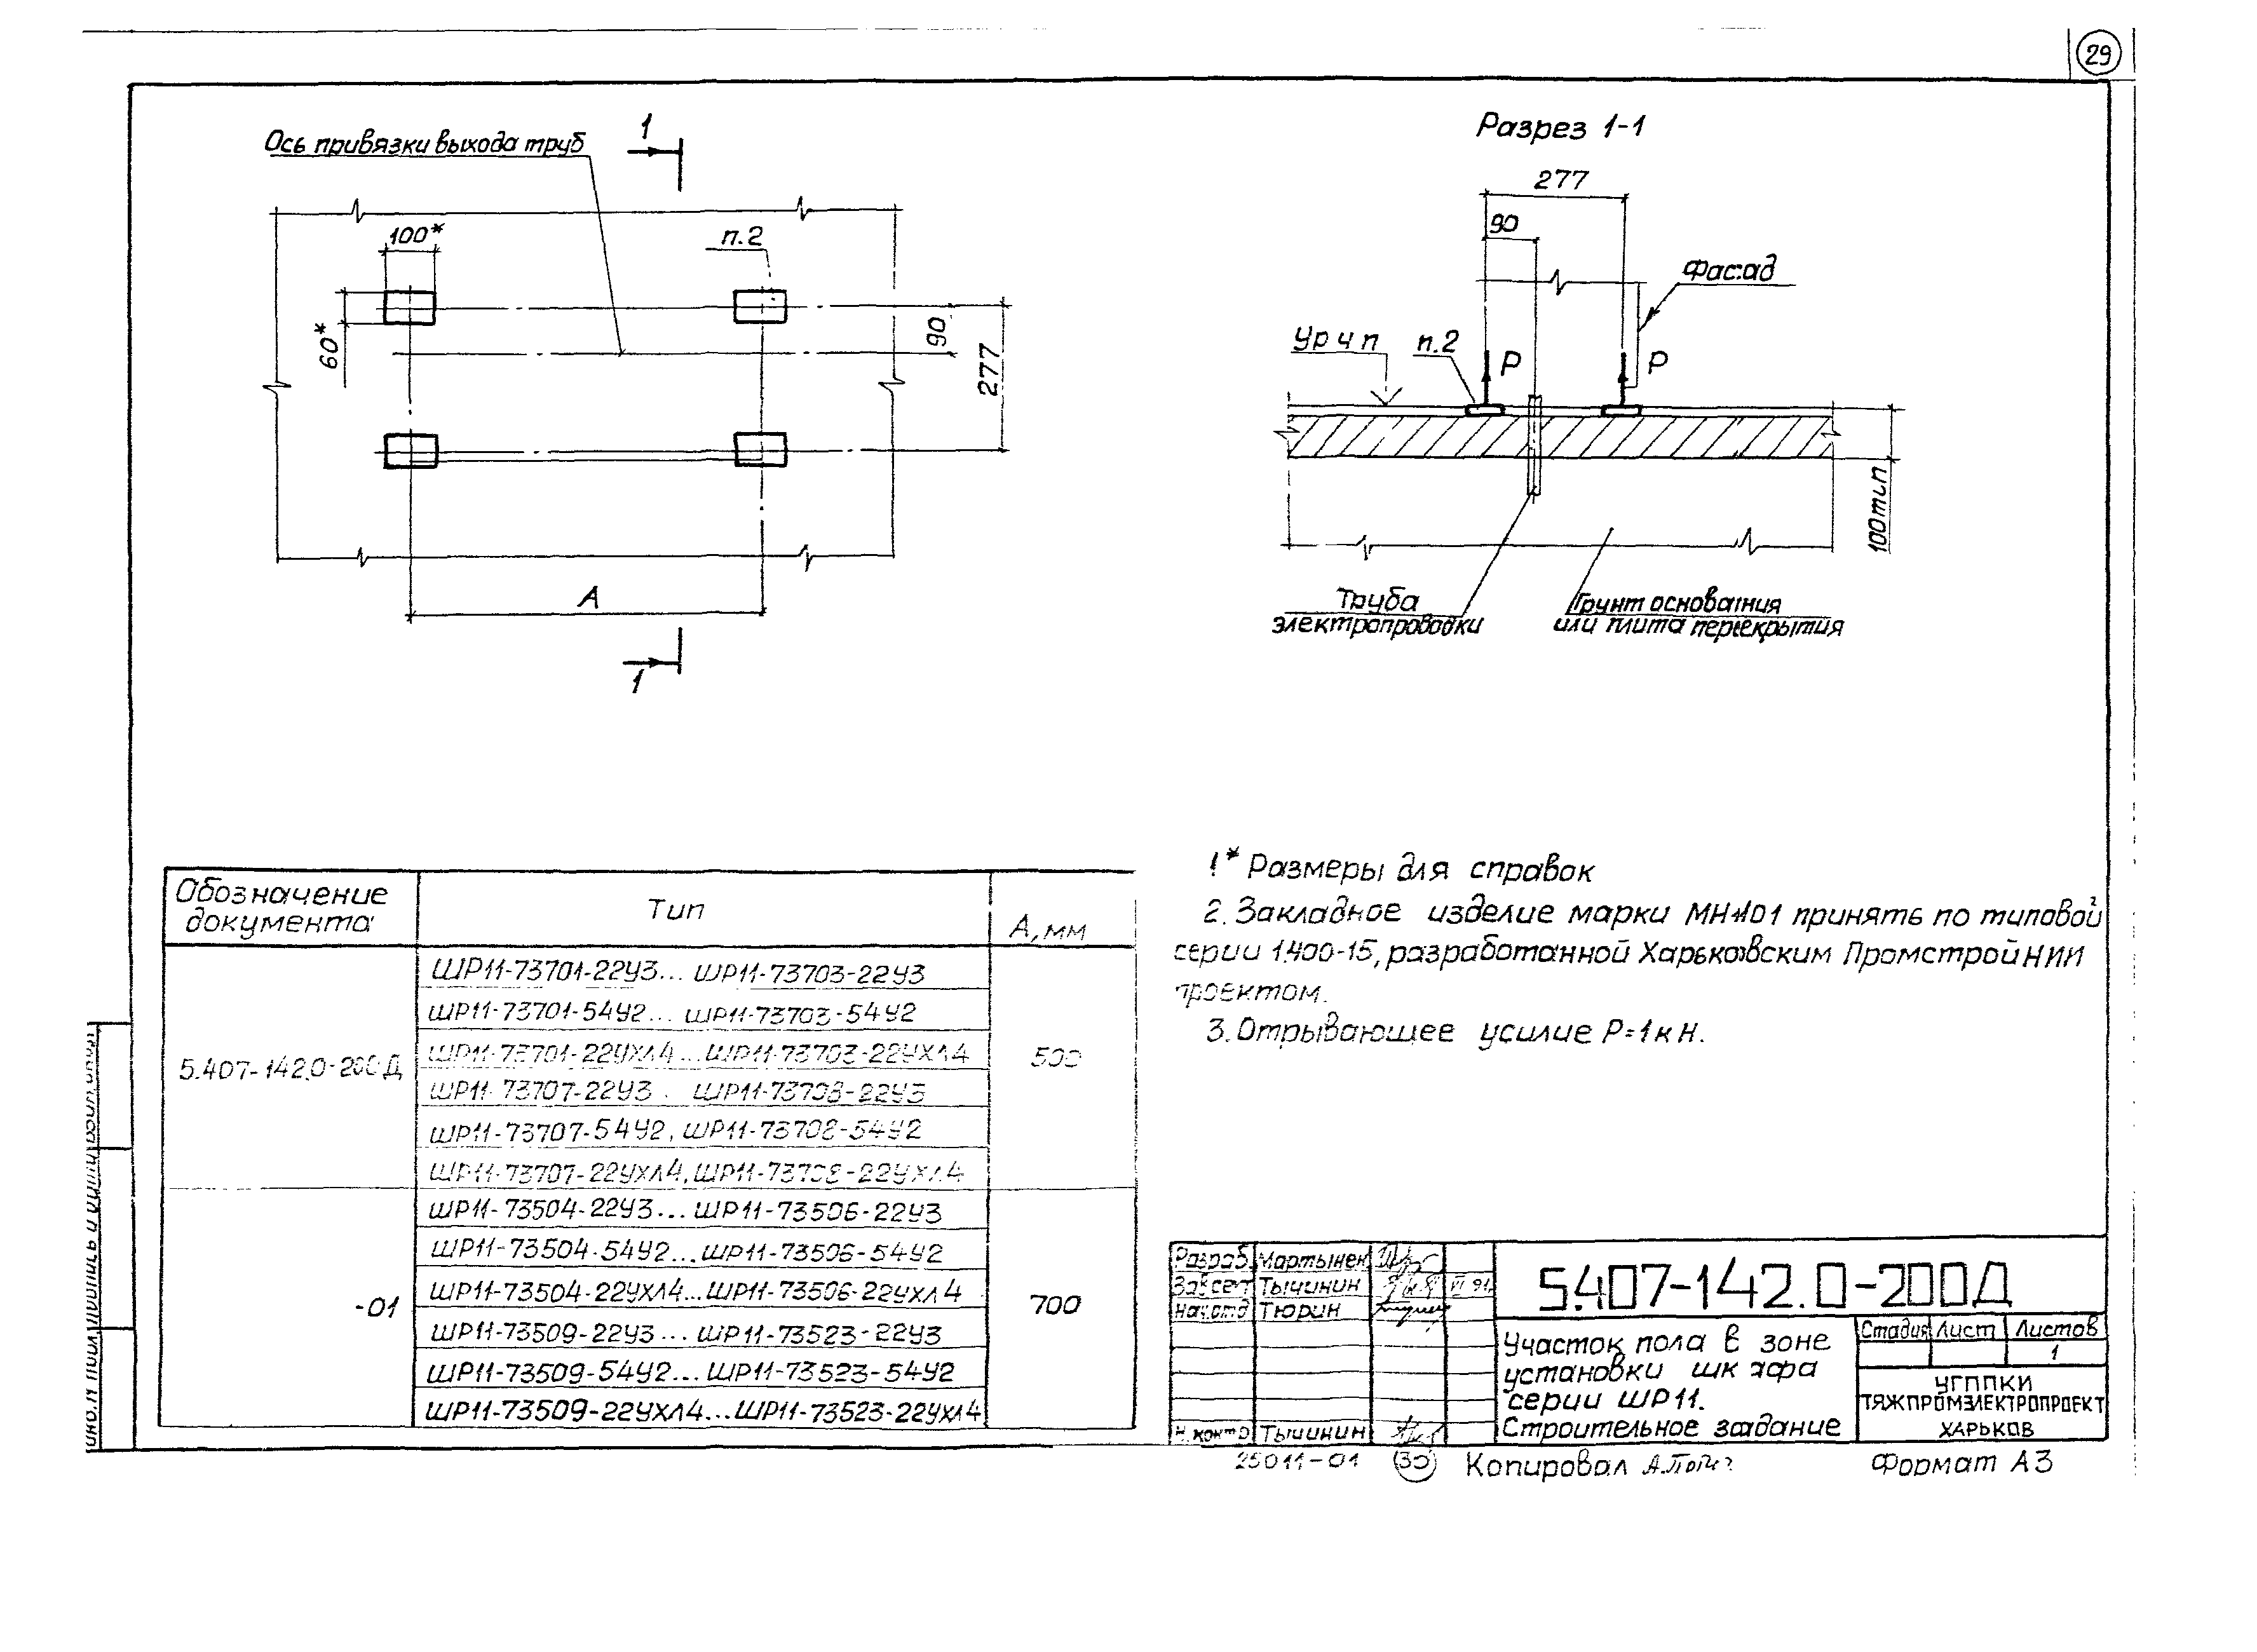 29
Ось привязки выхода труб
1
100*
п.2
60*
90
277
А
1
Разрез 1-1
277
90
Фасад
Ур ч п
п.2
Р
Р
100тип
Труба
электропроводки
Грунт основания
или плита перекрытия
Обозначение
документа
Тип
А, мм
5.407-142.0-200Д
ШР11-73701-22У3... ШР11-73703-22У3
ШР11-73701-54У2... ШР11-73703-54У2
ШР11-73701-22УХЛ4...ШР11-73703-22УХЛ4
ШР11-73707-22У3 . ШР11-73708-22У3
ШР11-73707-54У2, ШР11-73708-54У2
ШР11-73707-22УХЛ4, ШР11-73708-22УХЛ4
500
-01
ШР11-73504-22У3... ШР11-73506-22У3
ШР11-73504-54У2...ШР11-73506-54У2
ШР11-73504-22УХЛ4...ШР11-73506-22УХЛ4
ШР11-73509-22У3... ШР11-73523-22У3
ШР11-73509-54У2... ШР11-73523-54У2
ШР11-73509-22УХЛ4...ШР11-73523-22УХЛ4
700
1* Размеры для справок
2. Закладное изделие марки МН401 принять по типовой
серии 1.400-15, разработанной Харьковским ПромстройНИИ
проектом.
3. Отрывающее усилие Р=1кН.
Разраб. Мартынен
Зав сект Тычинин VI 91
Нач.отд Тюрин
Н.контр Тычинин
5.407-142.0-200Д
Участок пола в зоне
установки шкафа
серии ШР11.
Строительное задание
Стадия Лист Листов
1
УГППКИ
ТЯЖПРОМЭЛЕКТРОПРОЕКТ
ХАРЬКОВ
25011-01 30 Копировал Формат А3